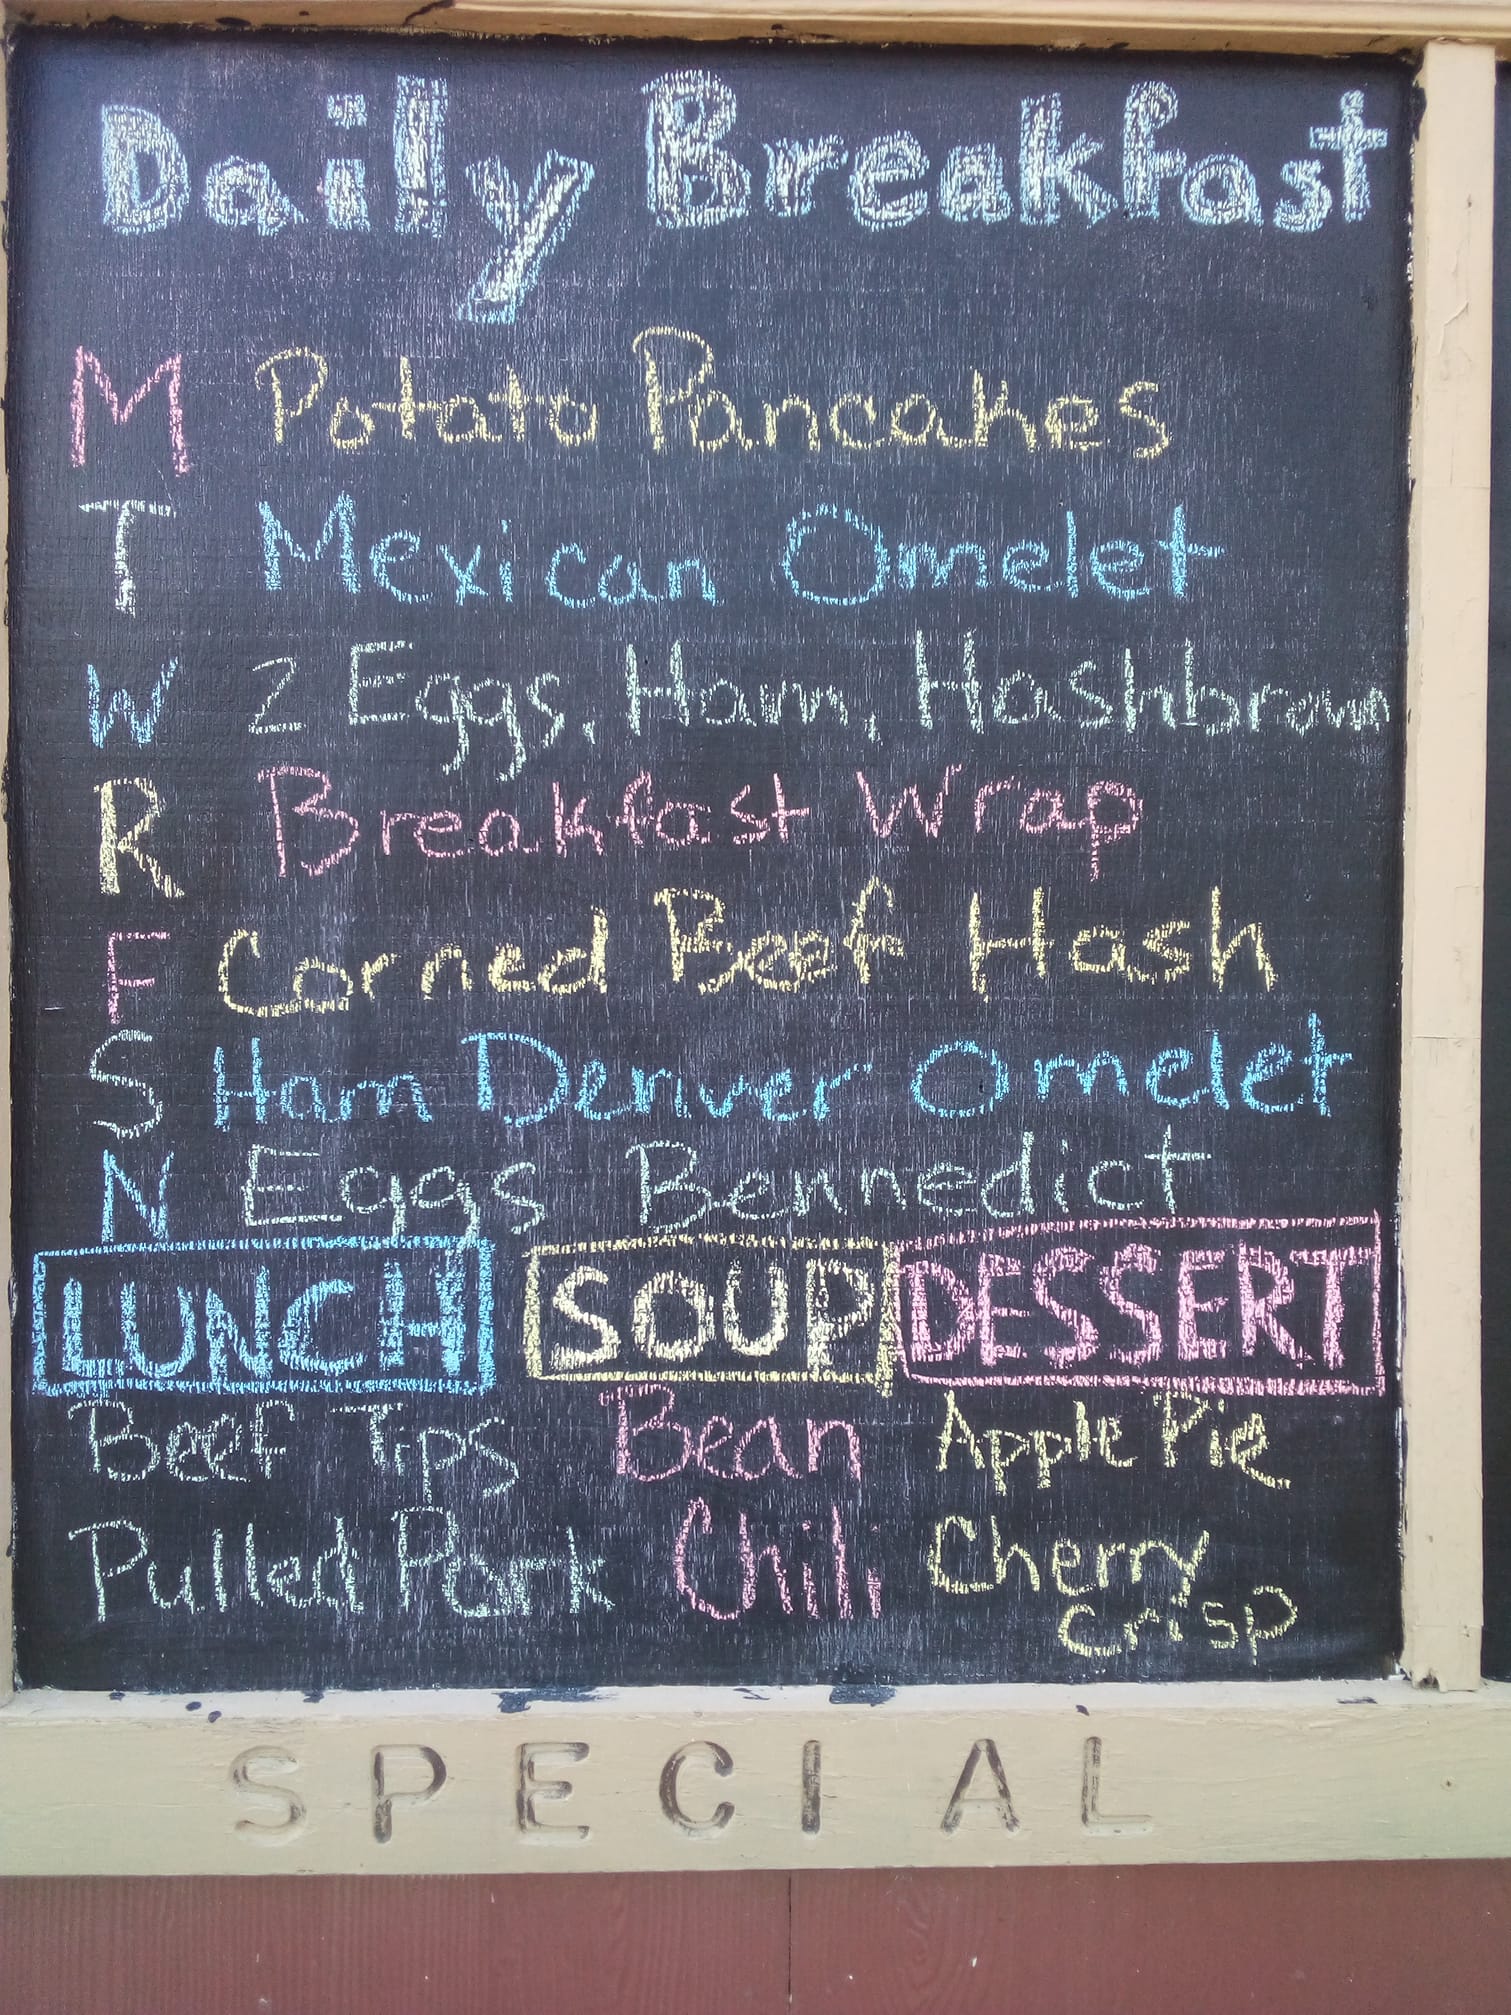 Daily Breakfast
M Potato Pancakes
T Mexican Omelet
W 2 Eggs, Ham, Hashbrown
R Breakfast Wrap
F Corned Beef Hash
S Ham Denver Omelet
N Eggs Bennedict
LUNCH SOUP DESSERT
Beef Tips Bean Apple Pie
Pulled Pork Chili Cherry
Crisp
SPECIAL